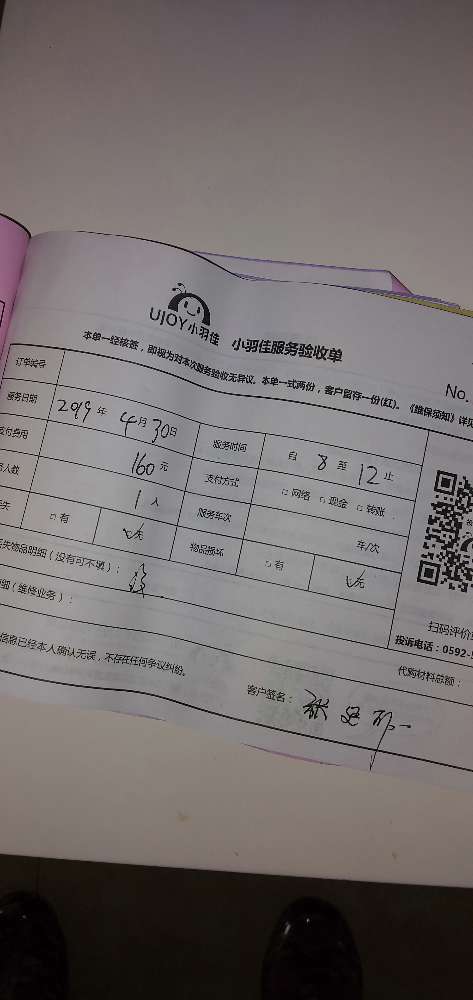 UJOY小羽佳 小羽佳服务验收单
本单一经核签，即视为对本次服务验收无异议。本单一式两份，客户留存一份(红)。《维保须知》详见
No.
订单编号
服务日期 2019年4月30日 服务时间 自8至12止
支付费用 160元 支付方式 □网络 □现金 □转账
人数 1人 服务车次 车/次
丢失 □有 ☑无 物品损坏 □有 ☑无
丢失物品明细（没有可不填）：
（维修业务）：
扫码评价
投诉电话：0592-5
代购材料总额：
信息已经本人确认无误，不存在任何争议纠纷。
客户签名：张